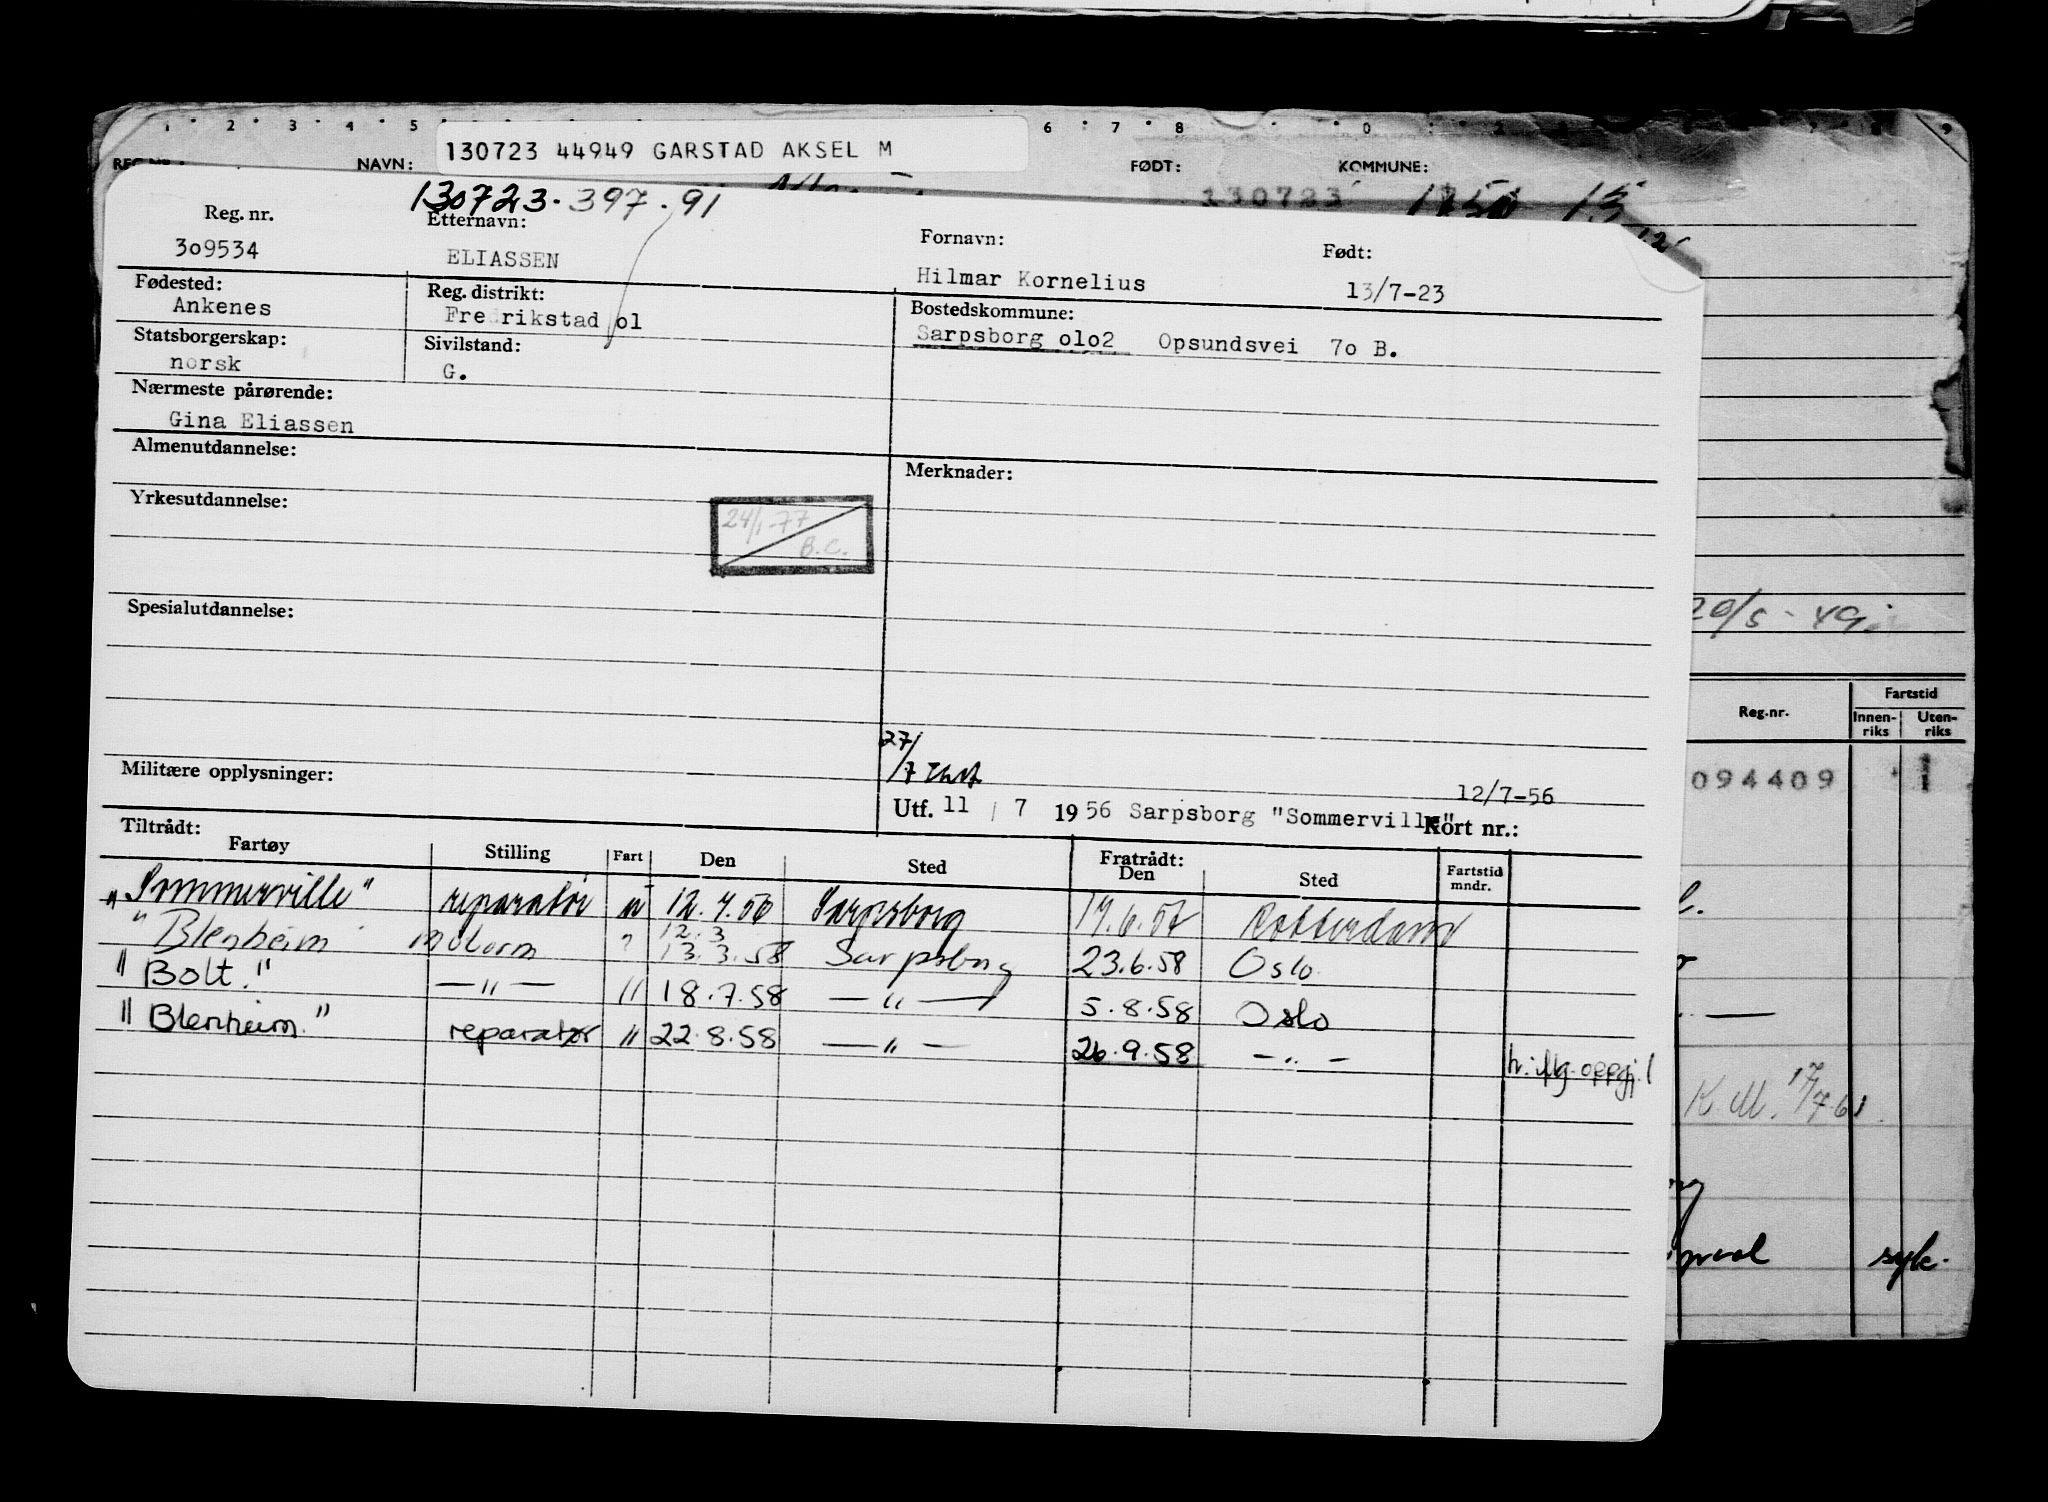 1 2 3 4 5 6 7 8
NAVN: 130723 44949 GARSTAD AKSEL M FØDT: KOMMUNE:
130723
130723.397.91
Reg. nr. Etternavn: Fornavn: Født:
3o9534 ELIASSEN Hilmar Kornelius 13/7-23
Fødested: Reg. distrikt: Bostedskommune:
Ankenes Fredrikstad o1 Sarpsborg o1o2 Opsundsvei 7o B.
Statsborgerskap: Sivilstand:
norsk G.
Nærmeste pårørende:
Gina Eliassen
Almenutdannelse: Merknader:
Yrkesutdannelse:
24/1-77
B.C.
Spesialutdannelse:
29/5-49
Reg.nr. Fartstid
Innen-riks Uten-riks
094409 1
27/7
Militære opplysninger: 12/7-56
Utf. 11 / 7 1956 Sarpsborg "Sommerville" Kort nr.:
Tiltrådt: Fratrådt:
Fartøy Stilling Fart Den Sted Den Sted Fartstid mndr.
"Sommerville" reparatør u 12.7.56 Sarpsborg 17.6.57 Rotterdam
12.3
"Blenheim motorm " 13.3.58 Sarpsborg 23.6.58 Oslo
"Bolt." —"— " 18.7.58 —"— 5.8.58 Oslo
"Blenheim." reparatør " 22.8.58 —"— 26.9.58 —"—
K M. 17/7-61
syk.